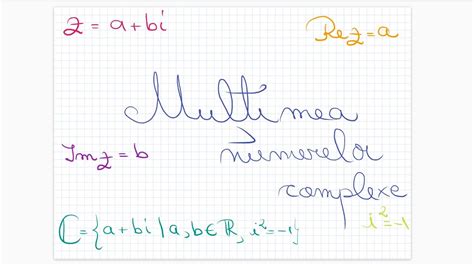 z = a+bi
Rez=a
Mulțimea
Imz=b
numerelor
complexe
i²=-1
ℂ={a+bi/a,b∈ℝ, i²=-1}